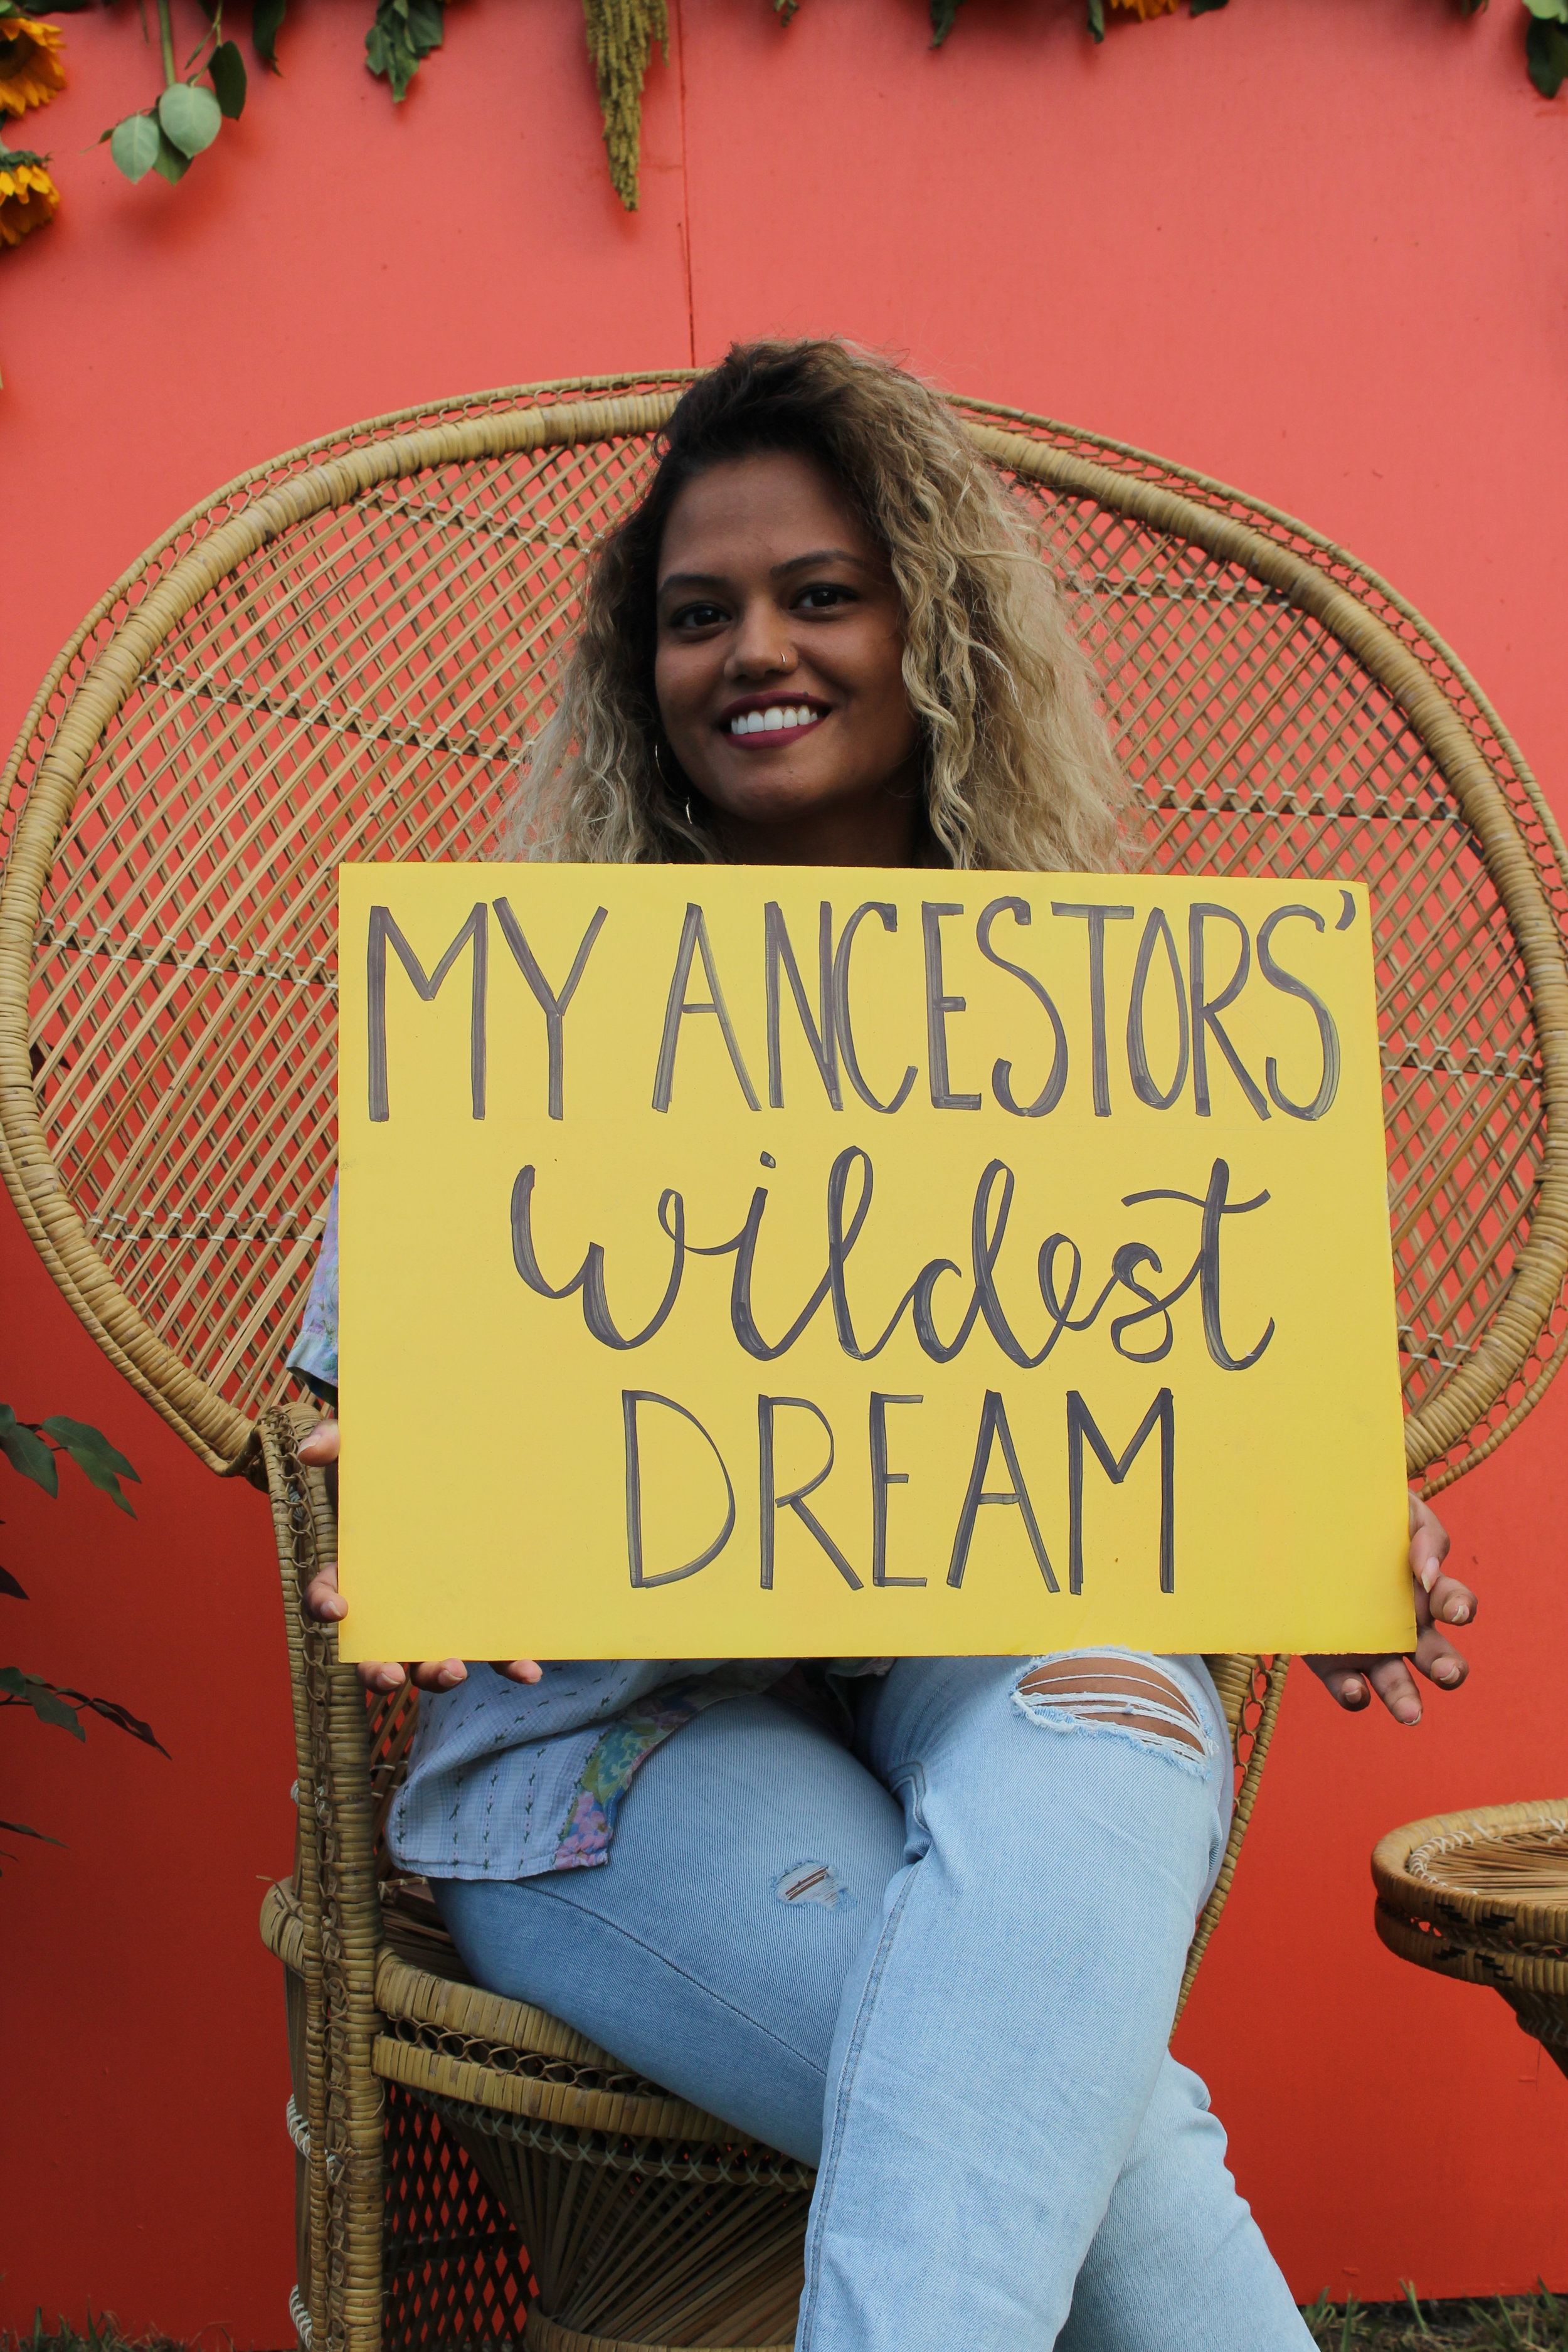 MY ANCESTORS'
wildest
DREAM